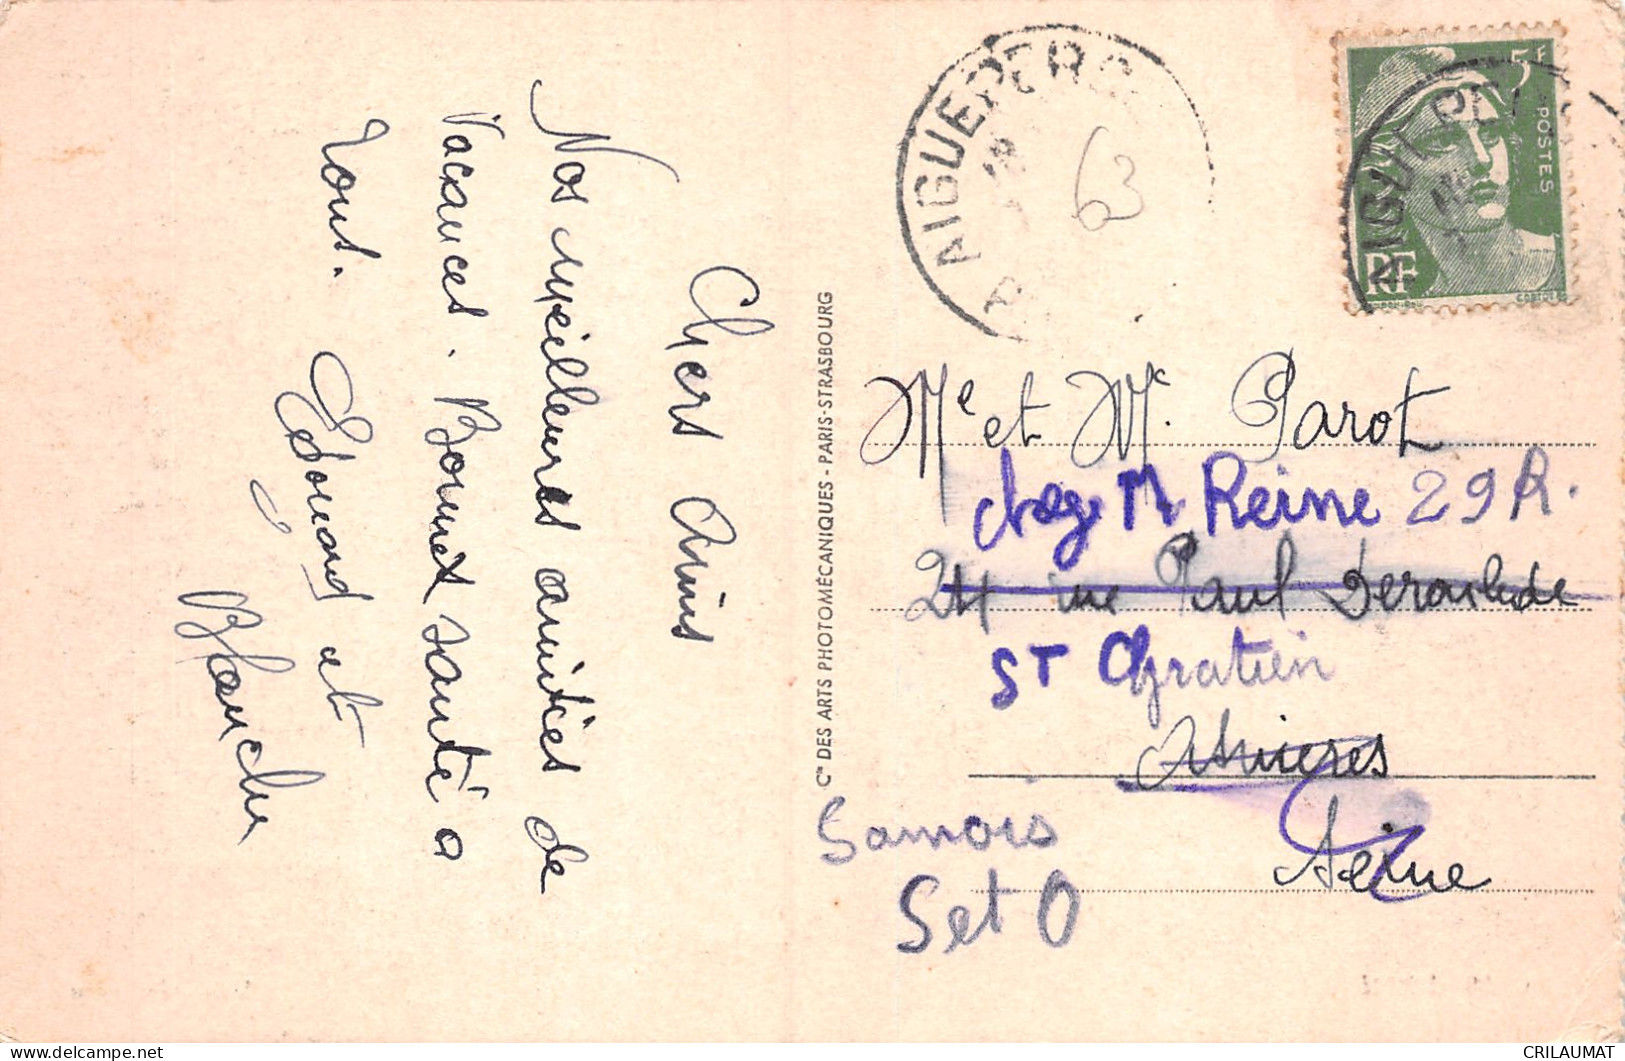 Chers Amis
Nos meilleures amitiés de
Vacances. Bonne santé a
tous.
Edouard et
Blanche
Cie DES ARTS PHOTOMÉCANIQUES - PARIS-STRASBOURG
AIGUEPERSE
63
5F
POSTES
RF
AIGUEPERSE
Me et Mr. Parot
chez M Reine 29 R.
24 rue Paul Deroulede
ST Gratien
Asnieres
Samois
Seine
S et O
CRILAUMAT